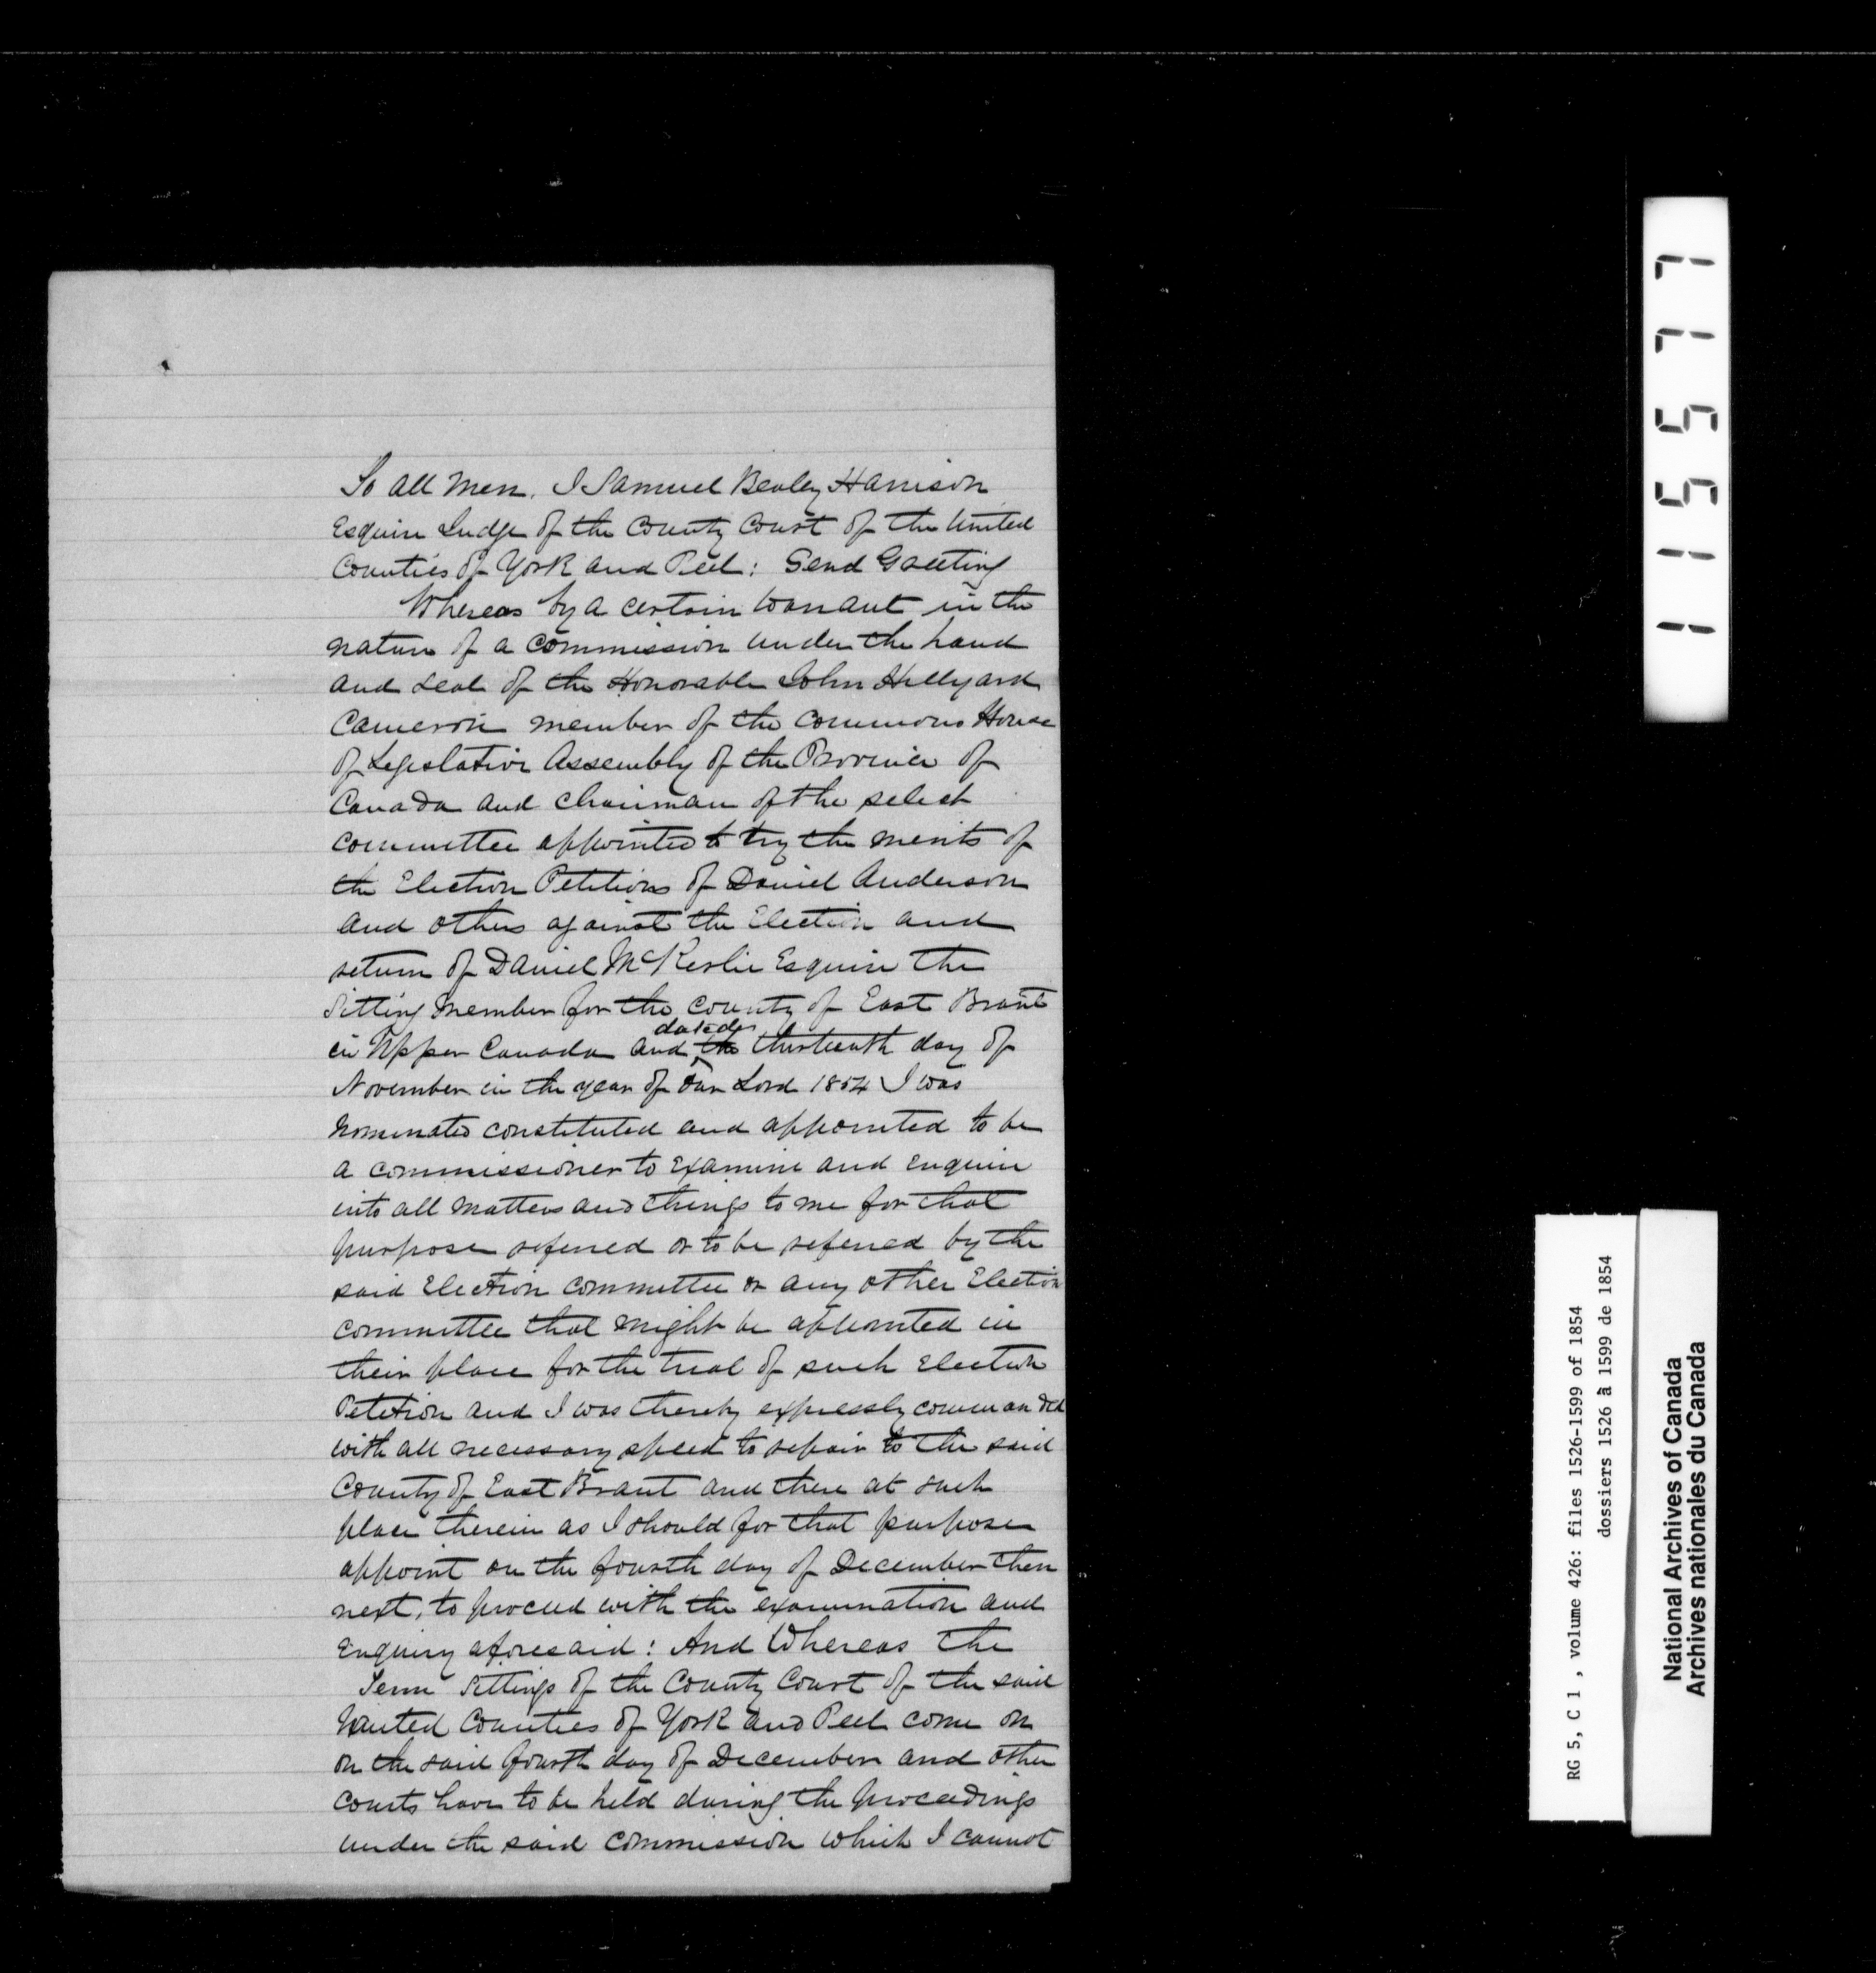 To all Men. I Samuel Bealey Harrison
Esquire Judge of the County Court of the United
Counties of York and Peel: Send Greeting
Whereas by a certain Warrant in the
nature of a Commission under the hand
and seal of the Honorable John Hillyard
Cameron member of the Commons House
of Legislative Assembly of the Province of
Canada and Chairman of the select
committee appointed to try the merits of
the Election Petitions of Daniel Anderson
and others against the Election and
return of Daniel McKerlie Esquire the
sitting member for the County of East Brant
in Upper Canada and dated the thirteenth day of
November in the year of our Lord 1854 I was
nominated constituted and appointed to be
a commissioner to Examine and enquire
into all matters and things to me for that
purpose referred or to be referred by the
said Election Committee or any other Election
committee that might be appointed in
their place for the trial of such Election
Petition and I was thereby expressly commanded
with all necessary speed to repair to the said
County of East Brant and there at such
place therein as I should for that purpose
appoint on the fourth day of December then
next, to proceed with the examination and
Enquiry aforesaid: And Whereas the
Term Sittings of the County Court of the said
United Counties of York and Peel come on
on the said fourth day of December and other
Courts have to be held during the proceedings
under the said Commission which I cannot
115577
RG 5, C 1 , volume 426: files 1526-1599 of 1854
dossiers 1526 à 1599 de 1854
National Archives of Canada
Archives nationales du Canada